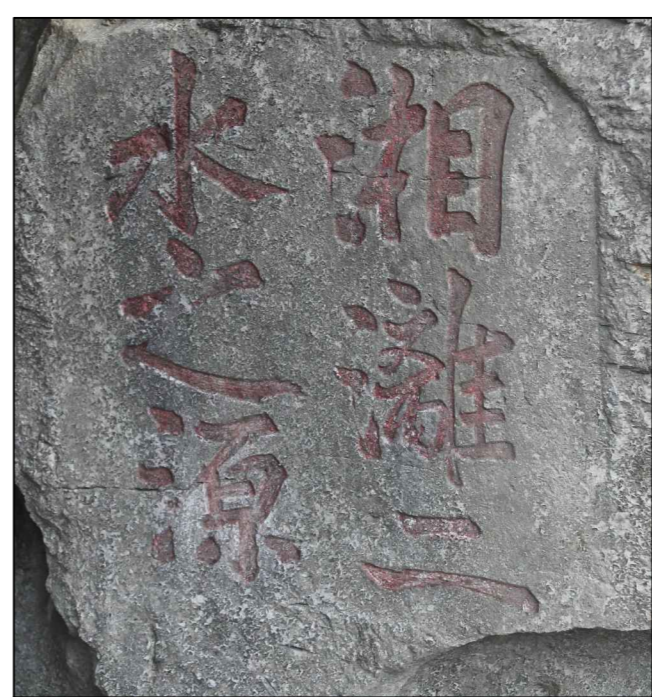 湘灕二
水之源